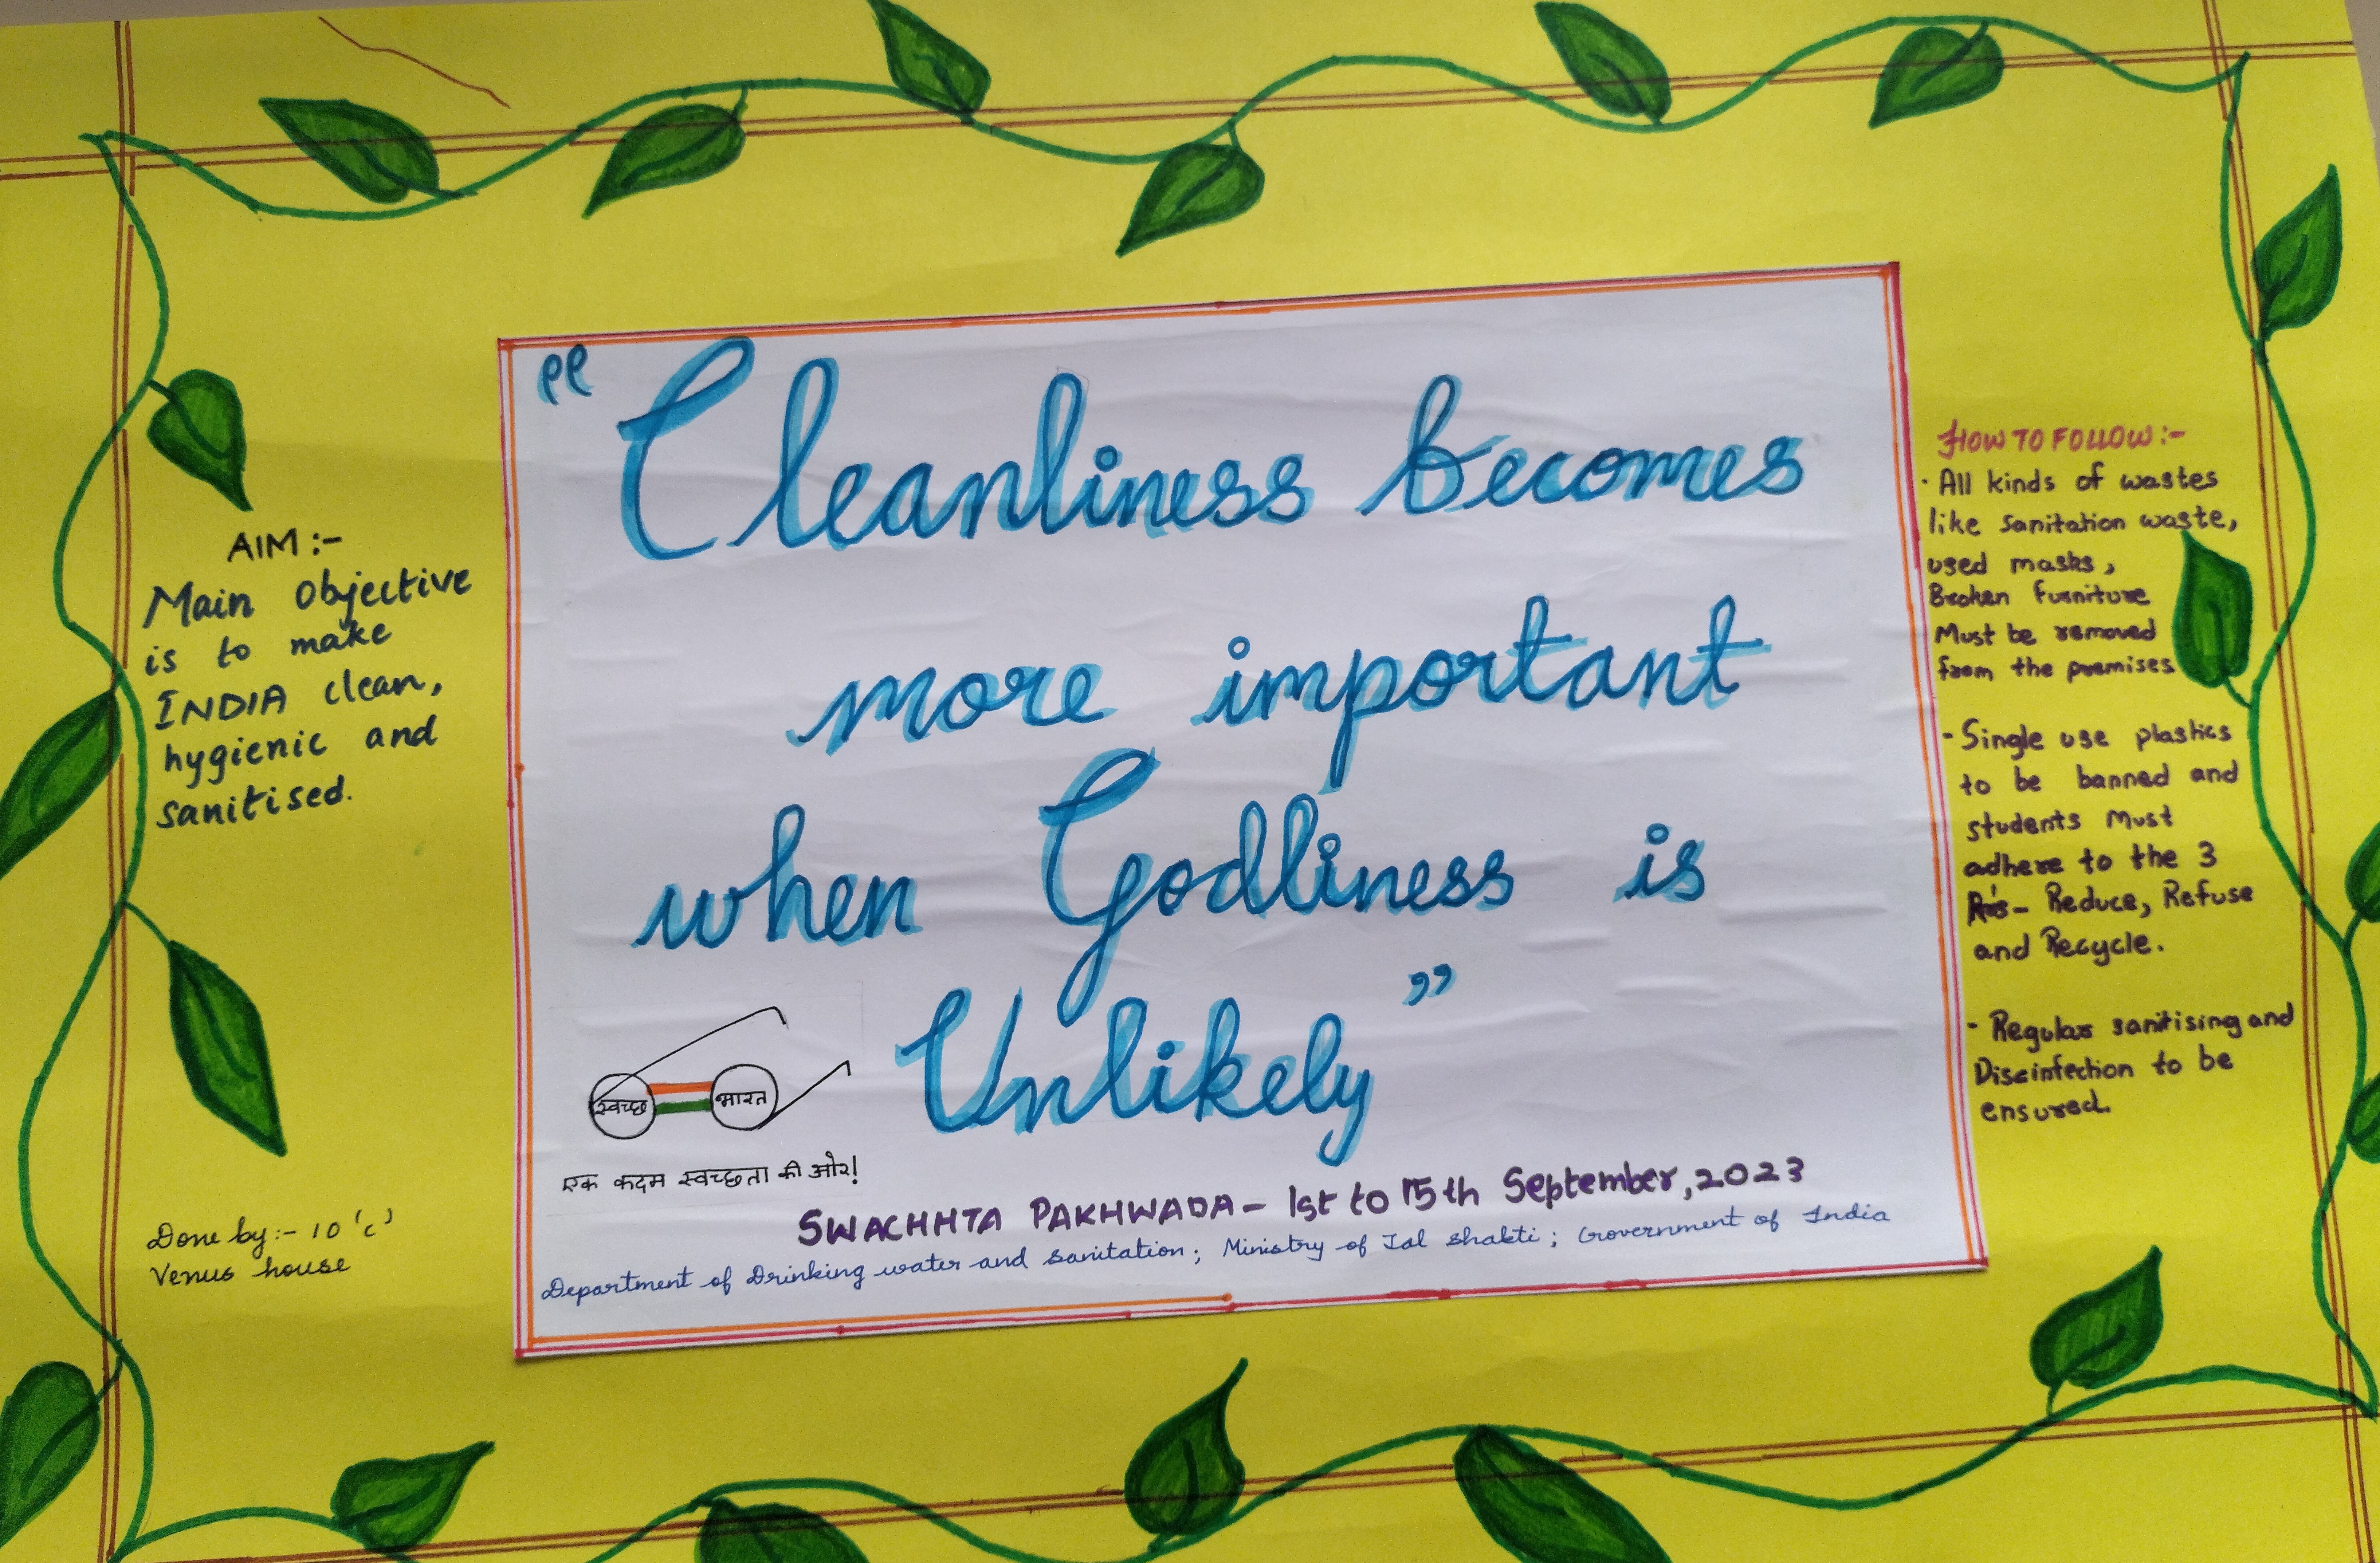 AIM :-
Main Objective
is to make
INDIA clean,
hygienic and
sanitised.
Done by:- 10 'c'
Venus house
“Cleanliness becomes
more important
when Godliness is
Unlikely”
स्वच्छ भारत
एक कदम स्वच्छता की ओर!
SWACHHTA PAKHWADA - 1st to 15th September, 2023
Department of Drinking water and sanitation; Ministry of Jal Shakti; Government of India
HOW TO FOLLOW :-
· All kinds of wastes
like sanitation waste,
used masks,
Broken furniture
Must be removed
from the premises
- Single use plastics
to be banned and
students Must
adhere to the 3
R's - Reduce, Refuse
and Recycle.
- Regular sanitising and
Disinfection to be
ensured.